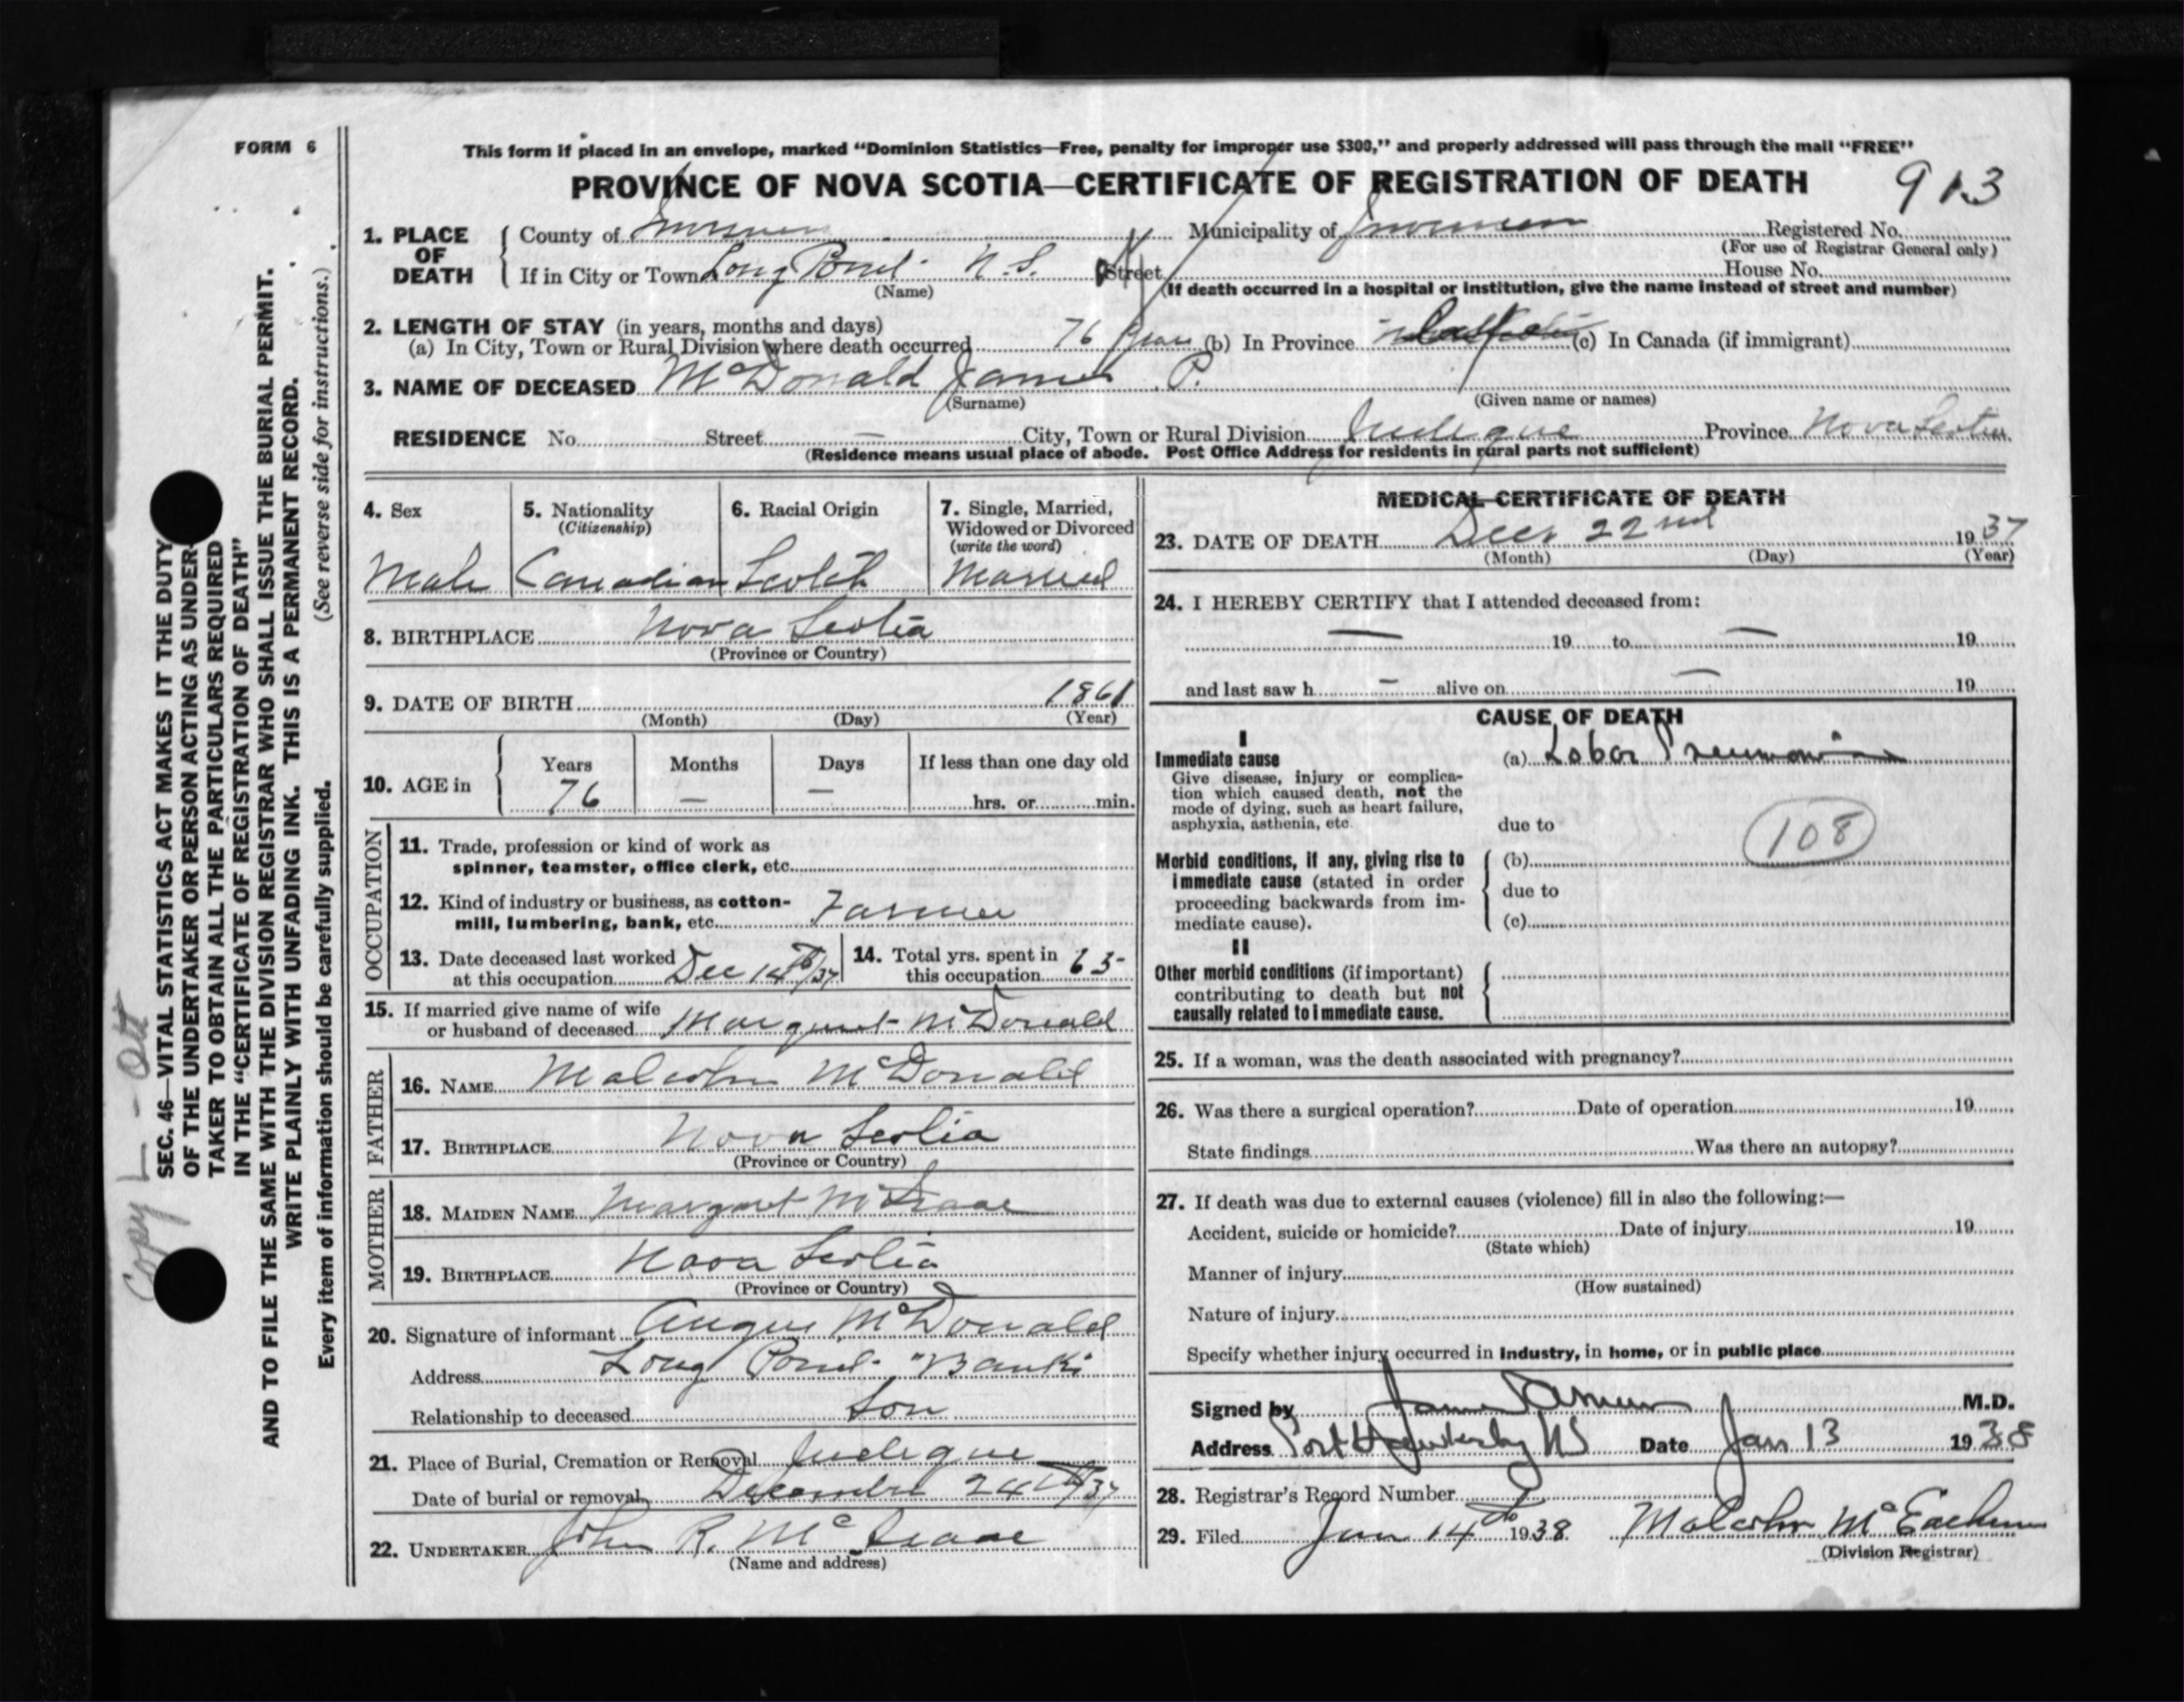 FORM 6
This form if placed in an envelope, marked “Dominion Statistics—Free, penalty for improper use $300,” and properly addressed will pass through the mail “FREE”
PROVINCE OF NOVA SCOTIA—CERTIFICATE OF REGISTRATION OF DEATH
913
1. PLACE OF DEATH { County of Inverness Municipality of Inverness Registered No.
(For use of Registrar General only)
If in City or Town Long Pond N.S. Street House No.
(Name) (If death occurred in a hospital or institution, give the name instead of street and number)
2. LENGTH OF STAY (in years, months and days)
(a) In City, Town or Rural Division where death occurred 76 years (b) In Province (c) In Canada (if immigrant)
3. NAME OF DECEASED McDonald James P.
(Surname) (Given name or names)
RESIDENCE No. Street — City, Town or Rural Division Judique Province Nova Scotia
(Residence means usual place of abode. Post Office Address for residents in rural parts not sufficient)
4. Sex
Male
5. Nationality
(Citizenship)
Canadian
6. Racial Origin
Scotch
7. Single, Married,
Widowed or Divorced
(write the word)
Married
8. BIRTHPLACE Nova Scotia
(Province or Country)
9. DATE OF BIRTH 1861
(Month) (Day) (Year)
10. AGE in { Years Months Days If less than one day old
76 — — hrs. or min.
OCCUPATION
11. Trade, profession or kind of work as
spinner, teamster, office clerk, etc.
12. Kind of industry or business, as cotton-
mill, lumbering, bank, etc. Farmer
13. Date deceased last worked
at this occupation Dec 14th/37
14. Total yrs. spent in
this occupation 63
15. If married give name of wife
or husband of deceased Margaret McDonald
FATHER
16. NAME Malcolm McDonald
17. BIRTHPLACE Nova Scotia
(Province or Country)
MOTHER
18. MAIDEN NAME Margaret McIsaac
19. BIRTHPLACE Nova Scotia
(Province or Country)
20. Signature of informant Angus McDonald
Address Long Pond "Banks
Relationship to deceased Son
21. Place of Burial, Cremation or Removal Judique
Date of burial or removal December 24th/37
22. UNDERTAKER John R. McIsaac
(Name and address)
MEDICAL CERTIFICATE OF DEATH
23. DATE OF DEATH Dec 22nd 1937
(Month) (Day) (Year)
24. I HEREBY CERTIFY that I attended deceased from:
— 19 to — 19
and last saw h — alive on — 19
CAUSE OF DEATH
I
Immediate cause (a) Lobar Pneumonia
Give disease, injury or complica-
tion which caused death, not the
mode of dying, such as heart failure,
asphyxia, asthenia, etc. due to
108
Morbid conditions, if any, giving rise to
immediate cause (stated in order
proceeding backwards from im-
mediate cause).
(b)
due to
(c)
II
Other morbid conditions (if important)
contributing to death but not
causally related to immediate cause.
25. If a woman, was the death associated with pregnancy?
26. Was there a surgical operation? Date of operation 19
State findings Was there an autopsy?
27. If death was due to external causes (violence) fill in also the following:—
Accident, suicide or homicide? Date of injury 19
(State which)
Manner of injury
(How sustained)
Nature of injury
Specify whether injury occurred in industry, in home, or in public place
Signed by James M.D.
Address Port Hawkesbury NS Date Jan 13 1938
28. Registrar's Record Number
29. Filed Jan 14th 1938. Malcolm McEachern
(Division Registrar)
SEC. 46—VITAL STATISTICS ACT MAKES IT THE DUTY
OF THE UNDERTAKER OR PERSON ACTING AS UNDER-
TAKER TO OBTAIN ALL THE PARTICULARS REQUIRED
IN THE “CERTIFICATE OF REGISTRATION OF DEATH”
AND TO FILE THE SAME WITH THE DIVISION REGISTRAR WHO SHALL ISSUE THE BURIAL PERMIT.
WRITE PLAINLY WITH UNFADING INK. THIS IS A PERMANENT RECORD.
Every item of information should be carefully supplied. (See reverse side for instructions.)
Copy L - Ott